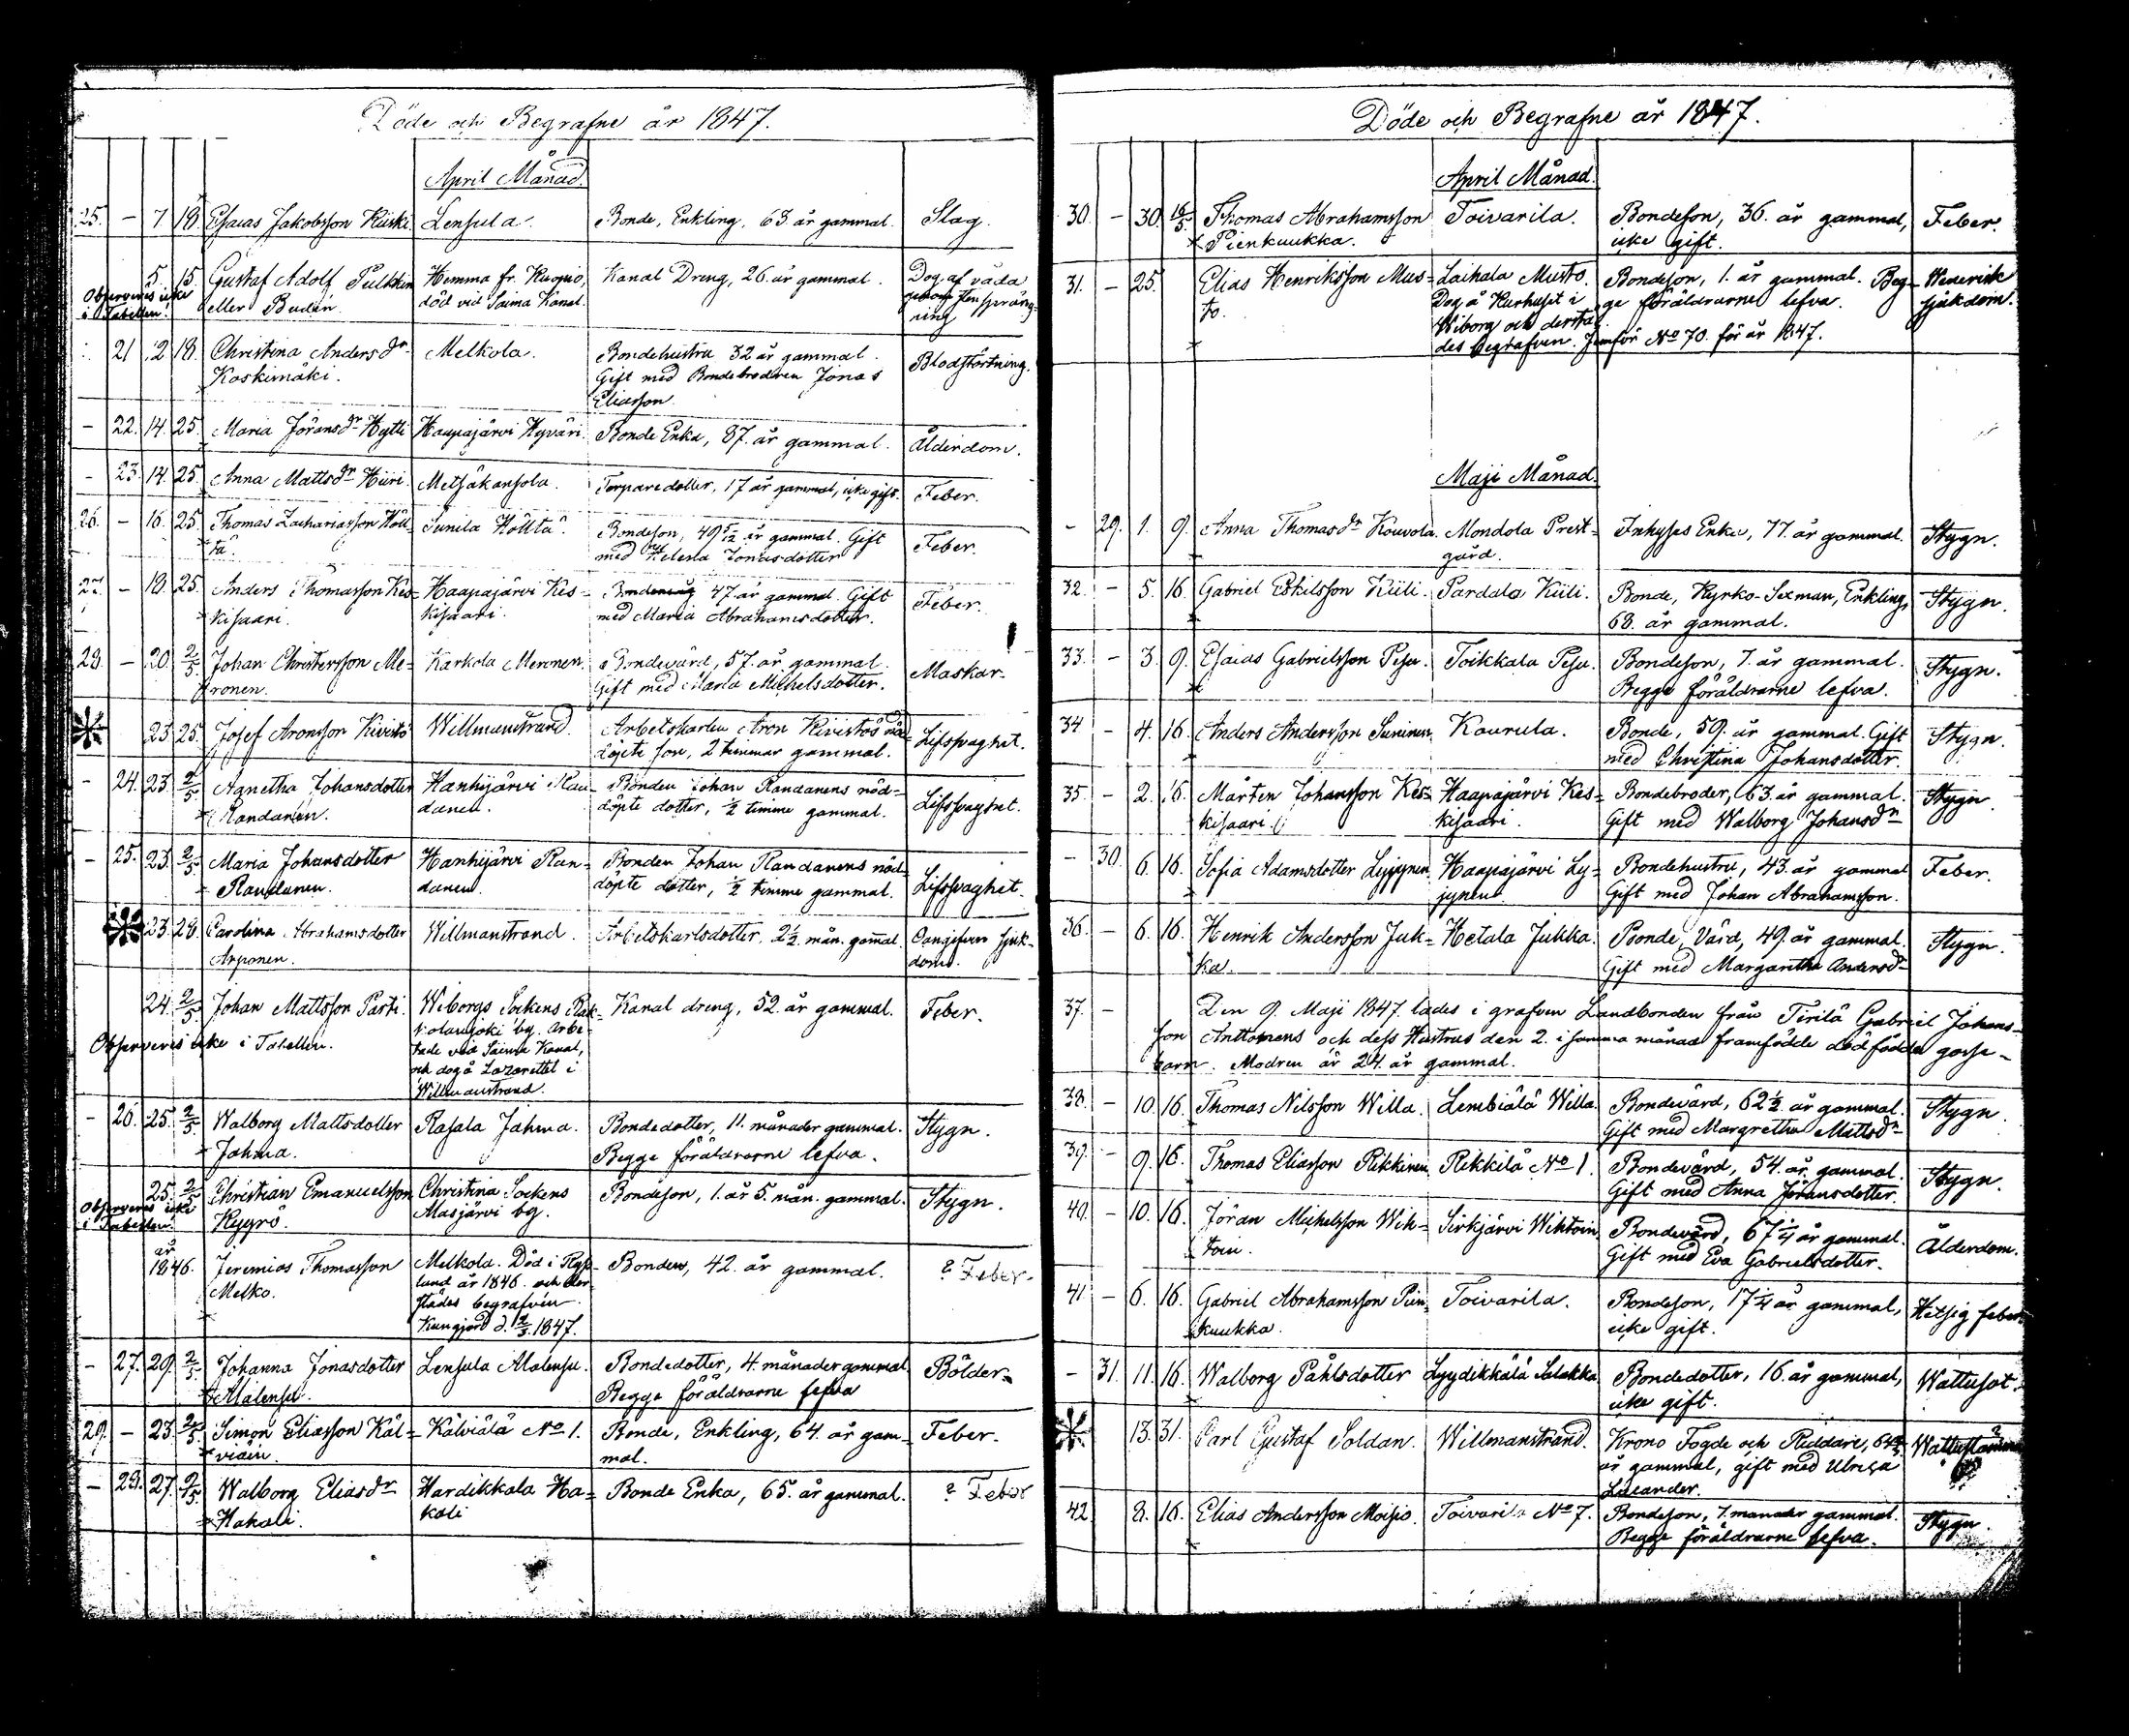 Döde och Begrafne år 1847.
April Månad.
25. — 7 18. Esaias Jakobsson Kiiski. Lensula. Bonde, Enkling, 63 år gammal. Slag.
5. 15. Gustaf Adolf Pulkkin Hemma fr. Kuopio, Kanal Dreng, 26 år gammal. Dog af våda
Observeras icke eller Budén. död vid Saima Kanal. genom stenspräng-
i Tabellen. ning
21. 2. 18. Christina Andersdr Melkola. Bondehustru 32 år gammal. Blodstörtning.
Koskimäki. Gift med Bondebrodren Jonas
Eliasson.
— 22. 14. 25. Maria Jöransdr Hytti Haapajärvi Hyväri. Bonde Enka, 87. år gammal. Ålderdom.
— 23. 14. 25. Anna Mattsdr Hiiri. Metsäkansola. Torparedotter, 17 år gammal, icke gift. Feber.
26. — 16. 25. Thomas Zachariasson Höll- Junila Hölltä. Bondeson, 49 5/12 år gammal. Gift Feber.
tä. med Helena Jonasdotter
27. — 18. 25. Anders Thomasson Kes- Haapajärvi Kes- 47 år gammal. Gift Feber.
kisaari. kisaari. med Maria Abrahamsdotter.
28. — 20. 2/5. Johan Christersson Me- Karkola Meronen. Bondevärd, 57. år gammal. Maskar.
ronen. Gift med Maria Michelsdotter.
23. 25. Josef Aronsson Kivistö Willmanstrand. Arbetskarlen Aron Kivistös nöd-
döpte son, 2 timmar gammal. Lifssvaghet.
— 24. 23. 2/5. Agnetha Johansdotter Hanhijärvi Ran- Bonden Johan Randanens nöd-
Randanen. danen. döpte dotter, 1/2 timme gammal. Lifssvaghet.
— 25. 23. 2/5. Maria Johansdotter Hanhijärvi Ran- Bonden Johan Randanens nöd-
Randanen. danen. döpte dotter, 1/2 timme gammal. Lifssvaghet.
23. 28. Carolina Abrahamsdotter Willmanstrand. Arbetskarlsdotter, 2 1/2 mån. gammal. Oangifven sjuk-
Arponen. dom.
24. 2/5. Johan Mattsson Parti. Wiborgs Sockens Kanal dreng, 52. år gammal. Feber.
Observeras icke i Tabellen. by. Arbe-
tade vid Saima Kanal,
och dog å Lazarettet i
Willmanstrand.
— 26. 25. 2/5. Walborg Mattsdotter Rasala Jahma. Bondedotter, 11. månader gammal. Stygn.
Jahma. Begge föräldrarne lefva.
25. 2/5 Christian Emanuelsson Christina Sockens Bondeson, 1. år 5. mån. gammal. Stygn.
Observeras icke Kyyrö. Masjärvi by.
i Tabellen.
år
1846. Jeremias Thomasson Melkola. Död i Ryss- Bonden, 42. år gammal. ? Feber.
Melko. land år 1846. och der-
städes begrafven.
Kungjord d. 2/5. 1847.
— 27. 29. 2/5. Johanna Jonasdotter Lensula Malensu. Bondedotter, 4. månader gammal Bölder.
Malensu. Begge föräldrarne lefva
29. — 23. 2/5. Simon Eliasson Käl- Kälviälä No 1. Bonde, Enkling, 64. år gam- Feber.
viäin. mal.
— 28. 27. 2/5. Walborg Eliasdr Hardikkala Ha- Bonde Enka, 65. år gammal. ? Feber
Hakali. kali
Döde och Begrafne år 1847.
April Månad.
30. — 30. 16/5. Thomas Abrahamsson Toivarila. Bondeson, 36. år gammal, Feber.
Pienkuukka. icke gift.
31. — 25. Elias Henriksson Mus- Laihala Musto. Bondeson, 1. år gammal. Beg- Venerisk
to. Dog å Kurhuset i ge föräldrarne lefva. sjukdom.
Wiborg och dersta-
des begrafven. Jemför No 70. för år 1847.
Maji Månad.
— 29. 1. 9. Anna Thomasdr Kouvola. Mondola Prest- Inhyses Enka, 77. år gammal. Stygn.
gård.
32. — 5. 16. Gabriel Eskilsson Kiili. Pardala Kiili. Bonde, Kyrko-Sexman, Enkling, Stygn.
68. år gammal.
33. — 3. 9. Esaias Gabrielsson Pesu. Toikkala Pesu. Bondeson, 7. år gammal. Stygn.
Begge föräldrarne lefva.
34. — 4. 16. Anders Andersson Suninen. Kaurula. Bonde, 59. år gammal. Gift Stygn.
med Christina Johansdotter.
35. — 2. 16. Mårten Johansson Kes- Haapajärvi Kes- Bondebroder, 63. år gammal. Stygn.
kisaari. kisaari. Gift med Walborg Johansdr
— 30. 6. 16. Sofia Adamsdotter Lyijynen Haapajärvi Ly- Bondehustru, 43. år gammal Feber.
jynen. Gift med Johan Abrahamsson.
36. — 6. 16. Henrik Andersson Juk- Hetala Jukka. Bonde Värd, 49. år gammal. Stygn.
ka. Gift med Margaretha Andersdr
37. — Den 9. Maji 1847. lades i grafven Landbonden från Tirilä Gabriel Johans-
son Anttonens och dess Hustrus den 2. i samma månad framfödde dödfödda gosse-
barn. Modren är 24. år gammal.
38. — 10. 16. Thomas Nilsson Willa. Lembiälä Willa. Bondevärd, 62 1/2. år gammal. Stygn.
Gift med Margretha Mattsdr
39. — 9. 16. Thomas Eliasson Rikkinen. Rikkilä No 1. Bondevärd, 54. år gammal. Stygn.
Gift med Anna Jöransdotter.
40. — 10. 16. Jöran Michelsson Wih- Sirkjärvi Wihtoin. Bondevärd, 67 1/4 år gammal. Ålderdom.
toin. Gift med Eva Gabrielsdotter.
41. — 6. 16. Gabriel Abrahamsson Pien- Toivarila. Bondeson, 17 1/4 år gammal, Hetsig feber.
kuukka. icke gift.
— 31. 11. 16. Walborg Påhlsdotter Lyydikkälä Salakka. Bondedotter, 16. år gammal, Wattusot.
icke gift.
13. 31. Carl Gustaf Soldan. Willmanstrand. Krono Fogde och Riddare, 64
år gammal, gift med Ulrica
Lacander.
42. 8. 16. Elias Andersson Moisio. Toivarila No 7. Bondeson, 7. månader gammal. Stygn.
Begge föräldrarne lefva.